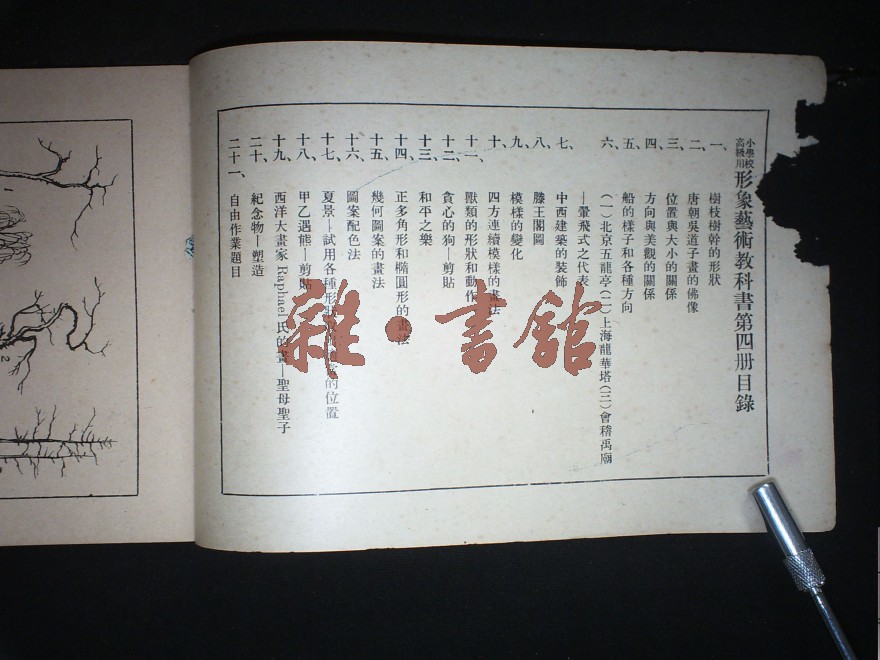 小學校高級用 形象藝術教科書第四册目錄
一、樹枝樹幹的形狀
二、唐朝吳道子畫的佛像
三、位置與大小的關係
四、方向與美觀的關係
五、船的樣子和各種方向
六、(一)北京五龍亭(二)上海龍華塔(三)會稽禹廟
—暈飛式之代表
七、中西建築的裝飾
八、滕王閣圖
九、模樣的變化
十、四方連續模樣的畫法
十一、獸類的形狀和動作
十二、貪心的狗—剪貼
十三、和平之樂
十四、正多角形和橢圓形的畫法
十五、幾何圖案的畫法
十六、圖案配色法
十七、夏景—試用各種形狀的位置
十八、甲乙遇熊—剪貼
十九、西洋大畫家Raphael氏的畫—聖母聖子
二十、紀念物—塑造
二十一、自由作業題目
雜·書館
2